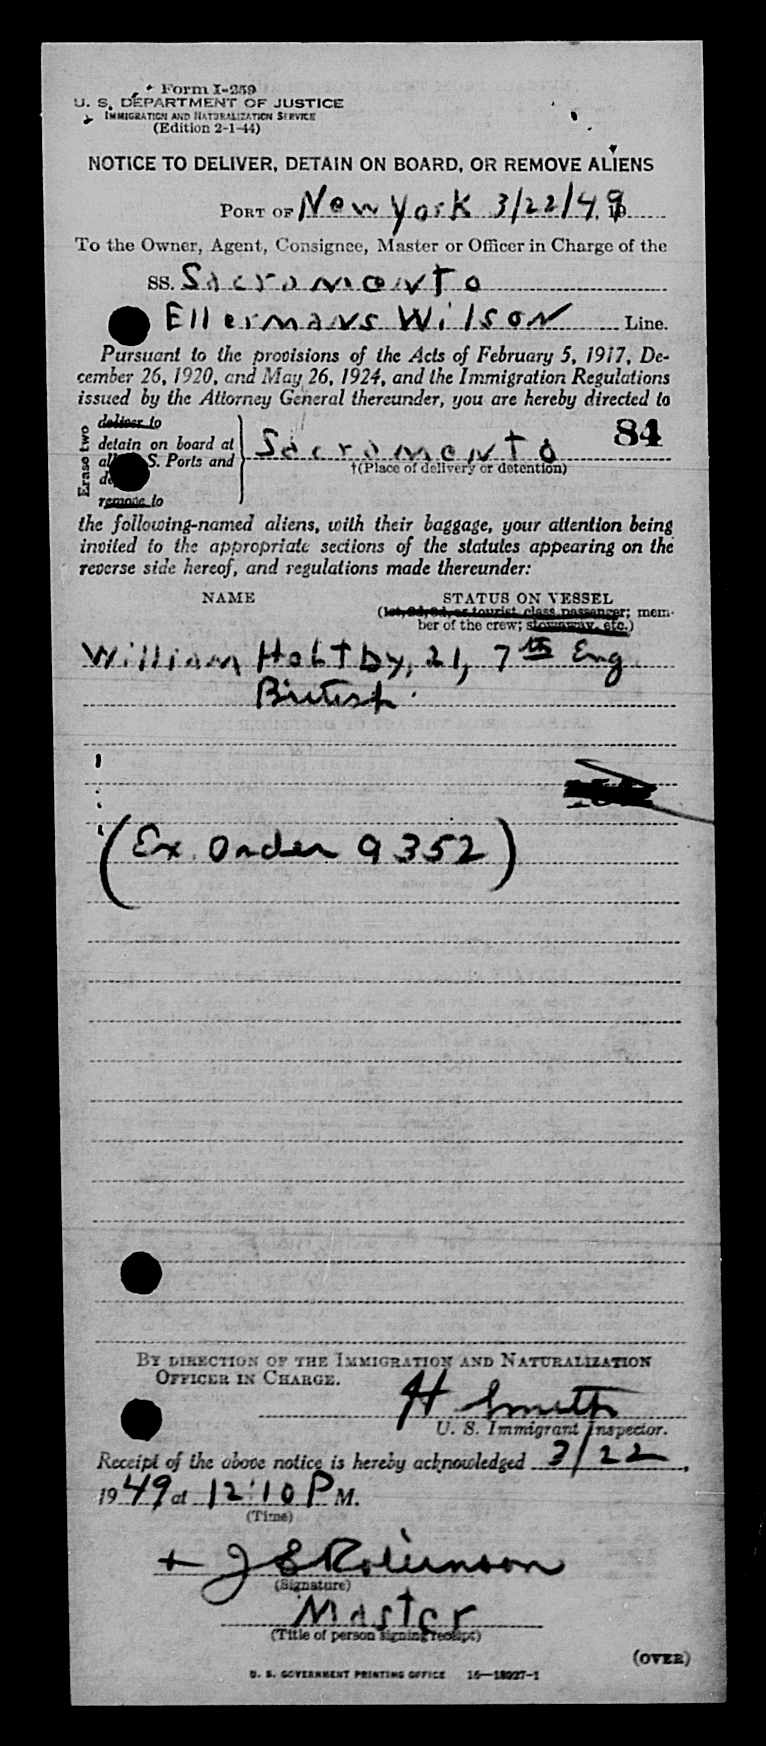 Form I-259
U. S. DEPARTMENT OF JUSTICE
IMMIGRATION AND NATURALIZATION SERVICE
(Edition 2-1-44)
NOTICE TO DELIVER, DETAIN ON BOARD, OR REMOVE ALIENS
PORT OF New York 3/22/49, 19
To the Owner, Agent, Consignee, Master or Officer in Charge of the
SS. Sacramento
Ellermans Wilson Line.
Pursuant to the provisions of the Acts of February 5, 1917, De-
cember 26, 1920, and May 26, 1924, and the Immigration Regulations
issued by the Attorney General thereunder, you are hereby directed to
Erase two
deliver to
detain on board at
all S. Ports and
remove to
Sacramento 84
†(Place of delivery or detention)
the following-named aliens, with their baggage, your attention being
invited to the appropriate sections of the statutes appearing on the
reverse side hereof, and regulations made thereunder:
NAME STATUS ON VESSEL
(1st, 2d, 3d, or tourist class passenger; mem-
ber of the crew; stowaway, etc.)
William Holtby, 21, 7th Eng
British.
(Ex. Order 9352)
BY DIRECTION OF THE IMMIGRATION AND NATURALIZATION
OFFICER IN CHARGE.
H Smith
U. S. Immigrant Inspector.
Receipt of the above notice is hereby acknowledged 3/22,
1949 at 12:10 P M.
(Time)
+ J S Robinson
(Signature)
Master
(Title of person signing receipt)
(OVER)
U. S. GOVERNMENT PRINTING OFFICE 16—18927-1